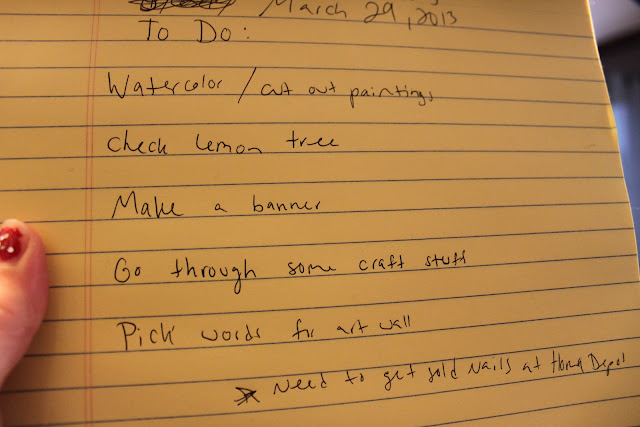 March 29, 2013
To Do:
Watercolor / cut out paintings
check lemon tree
Make a banner
Go through some craft stuff
Pick words for art wall
* Need to get gold nails at Home Depot